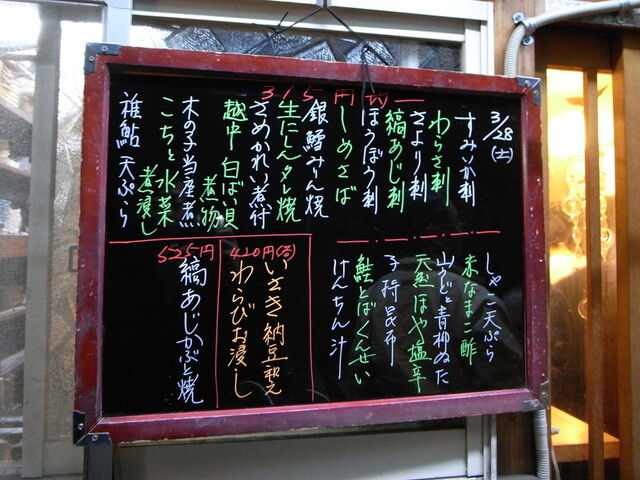 3/28(土)
315円均一
すみいか刺
わらさ刺
さより刺
縞あじ刺
ほうぼう刺
しめさば
銀鱈みりん焼
生にしんタレ焼
さめかれい煮付
越中白ばい貝煮物
木の子当座煮
こちと水菜煮浸し
稚鮎天ぷら
しゃこ天ぷら
赤なまこ酢
山うどと青柳ぬた
天然ほや塩辛
子持昆布
鮭とばくんせい
けんちん汁
420円(各)
いさき納豆和え
わらびお浸し
525円
縞あじかぶと焼